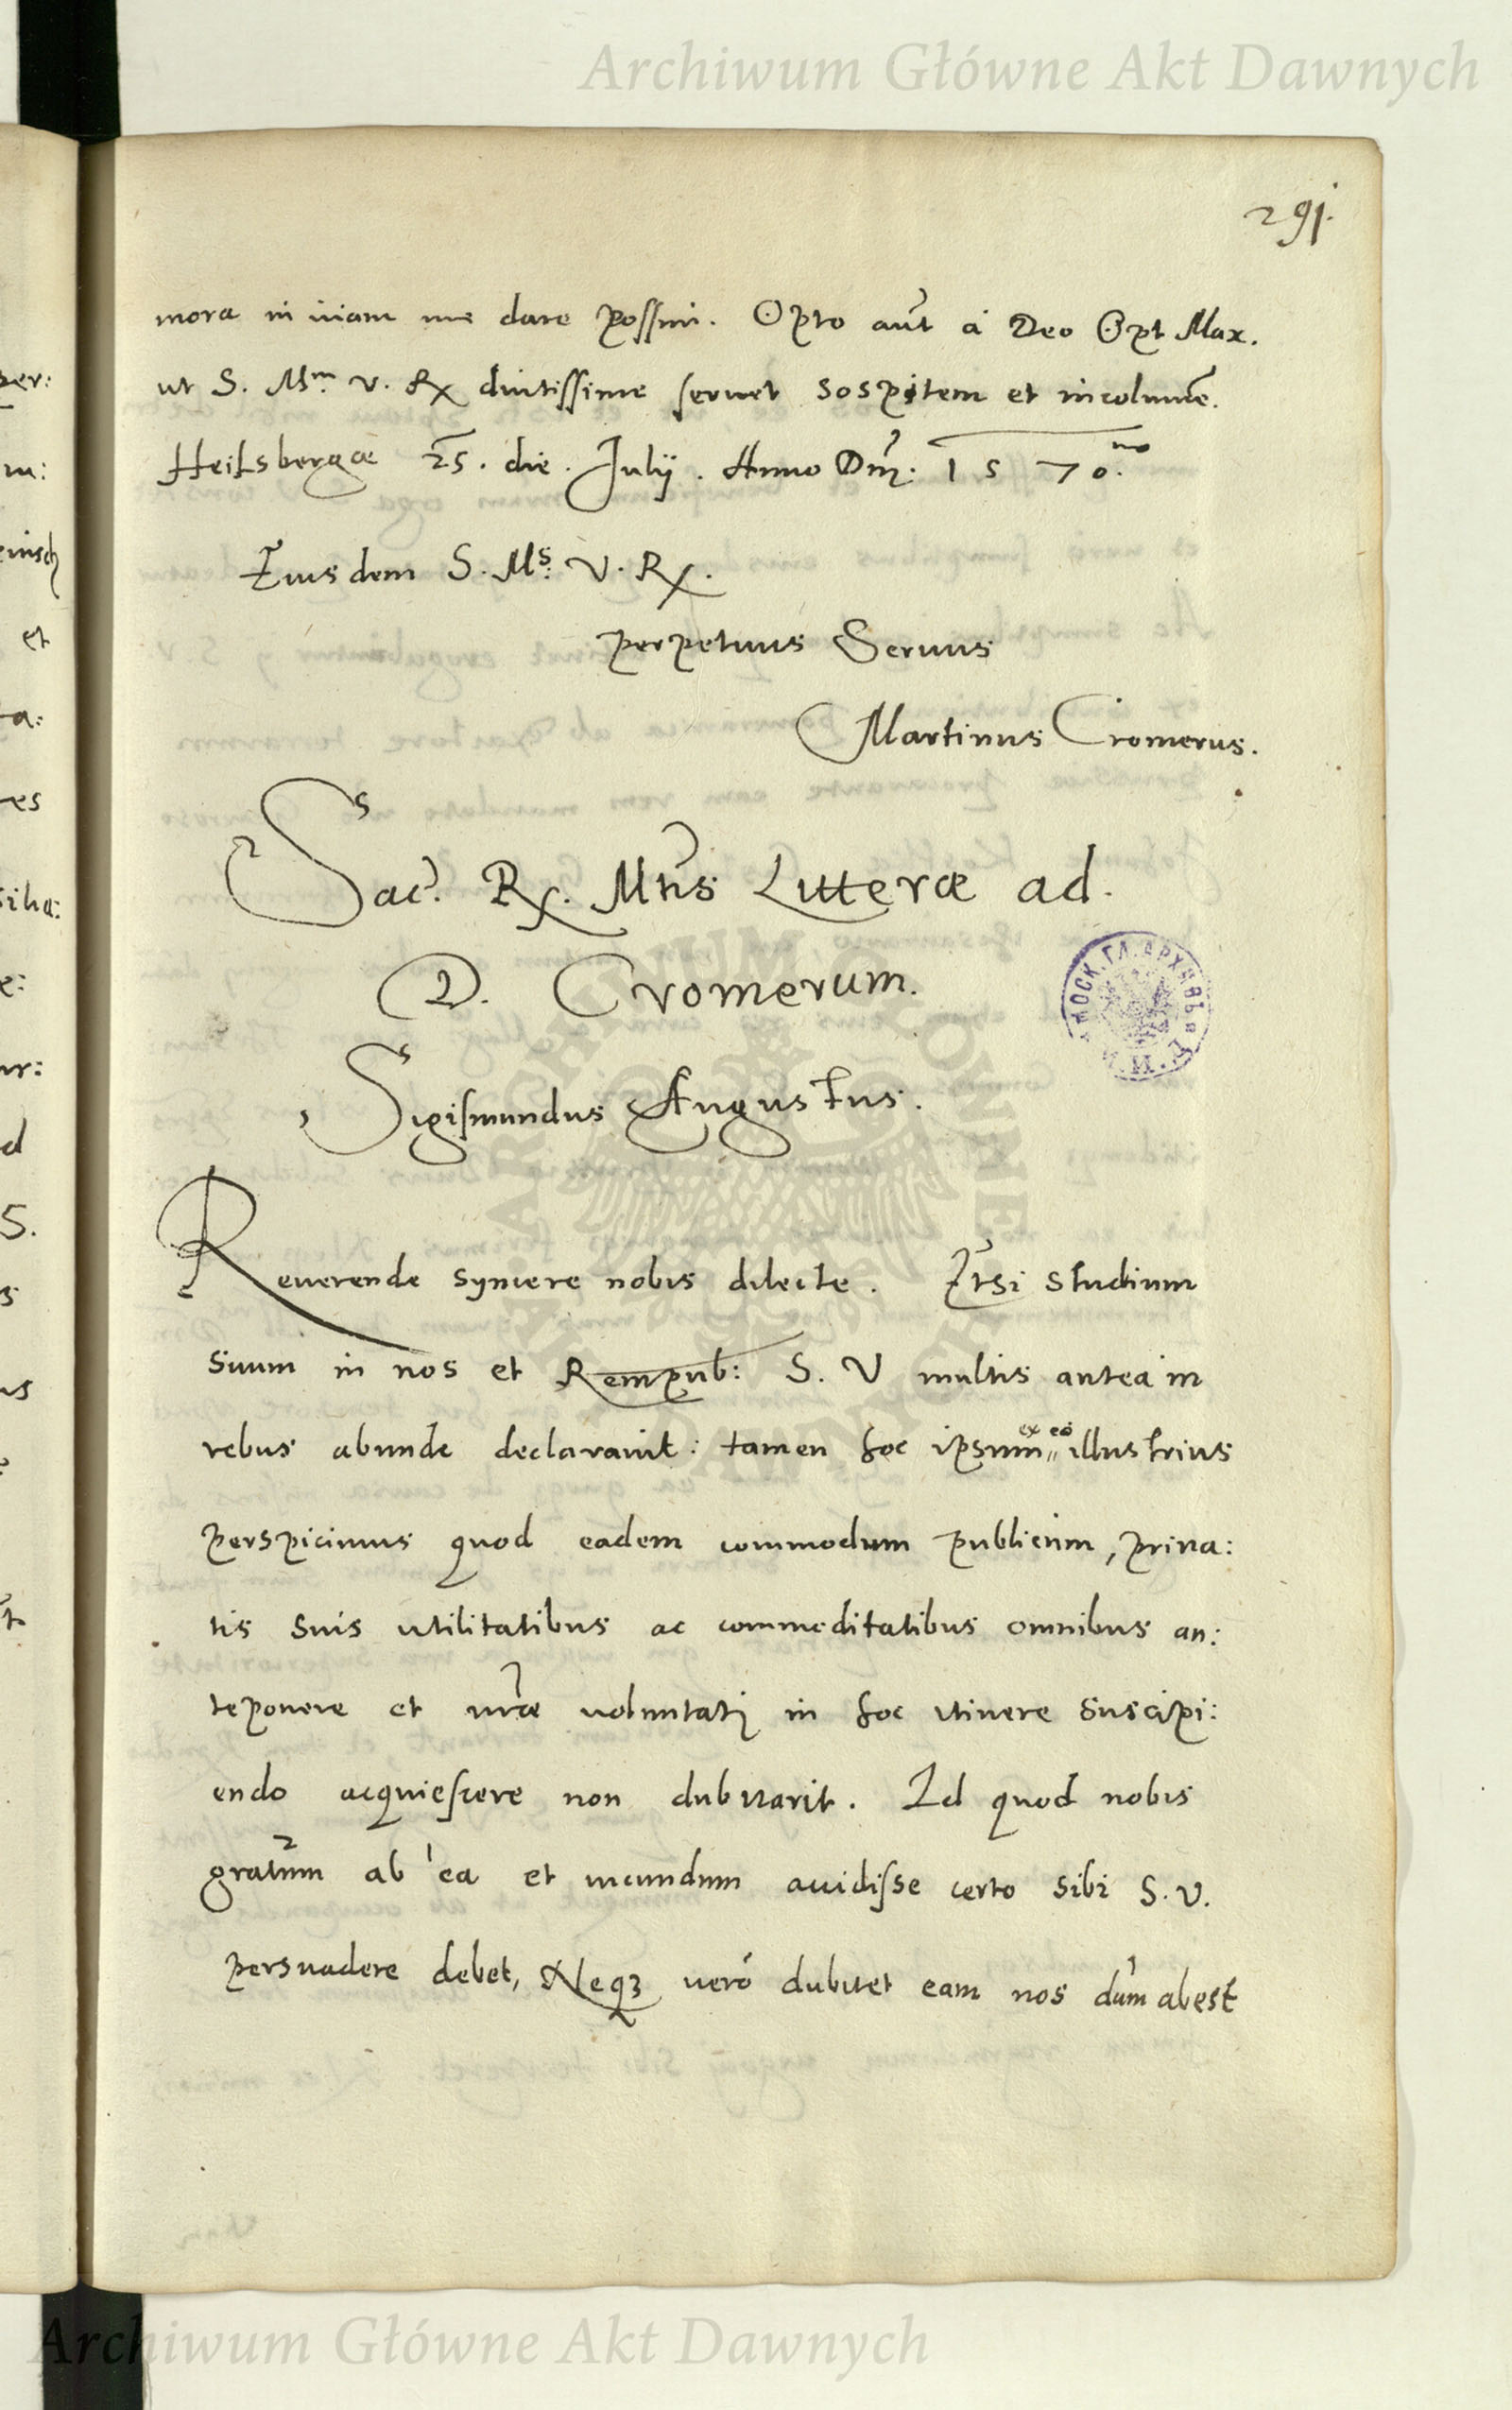 Archiwum Główne Akt Dawnych
291.
mora in viam me dare possim. Opto aut̃ à Deo Opt Max.
ut S. M.m V. Rx diutissime servet sospitem et incolumẽ.
Heilsbergæ 25. die. Julij. Anno Dnĩ. 1570.mo
Eiusdem S. M.s V. Rx.
perpetuus Servus
Martinus Cromerus.
Sac. Rx. Mtis Litteræ ad.
D. Cromerum.
Sigismundus Augustus.
Reverende syncere nobis dilecte. Etsi studium
suum in nos et Rempub: S. V multis antea in
rebus abunde declaravit: tamen hoc ipsum ex eo illustrius
perspicimus quod eadem commodum publicum, priva:
tis suis utilitatibus ac commoditatibus omnibus an:
teponere et nræ voluntati in hoc itinere suscipi:
endo acquiescere non dubitarit. Id quod nobis
gratum ab ea et iucundum accidisse certo sibi S. V.
persuadere debet, Neqz verò dubitet eam nos dum abest
Archiwum Główne Akt Dawnych